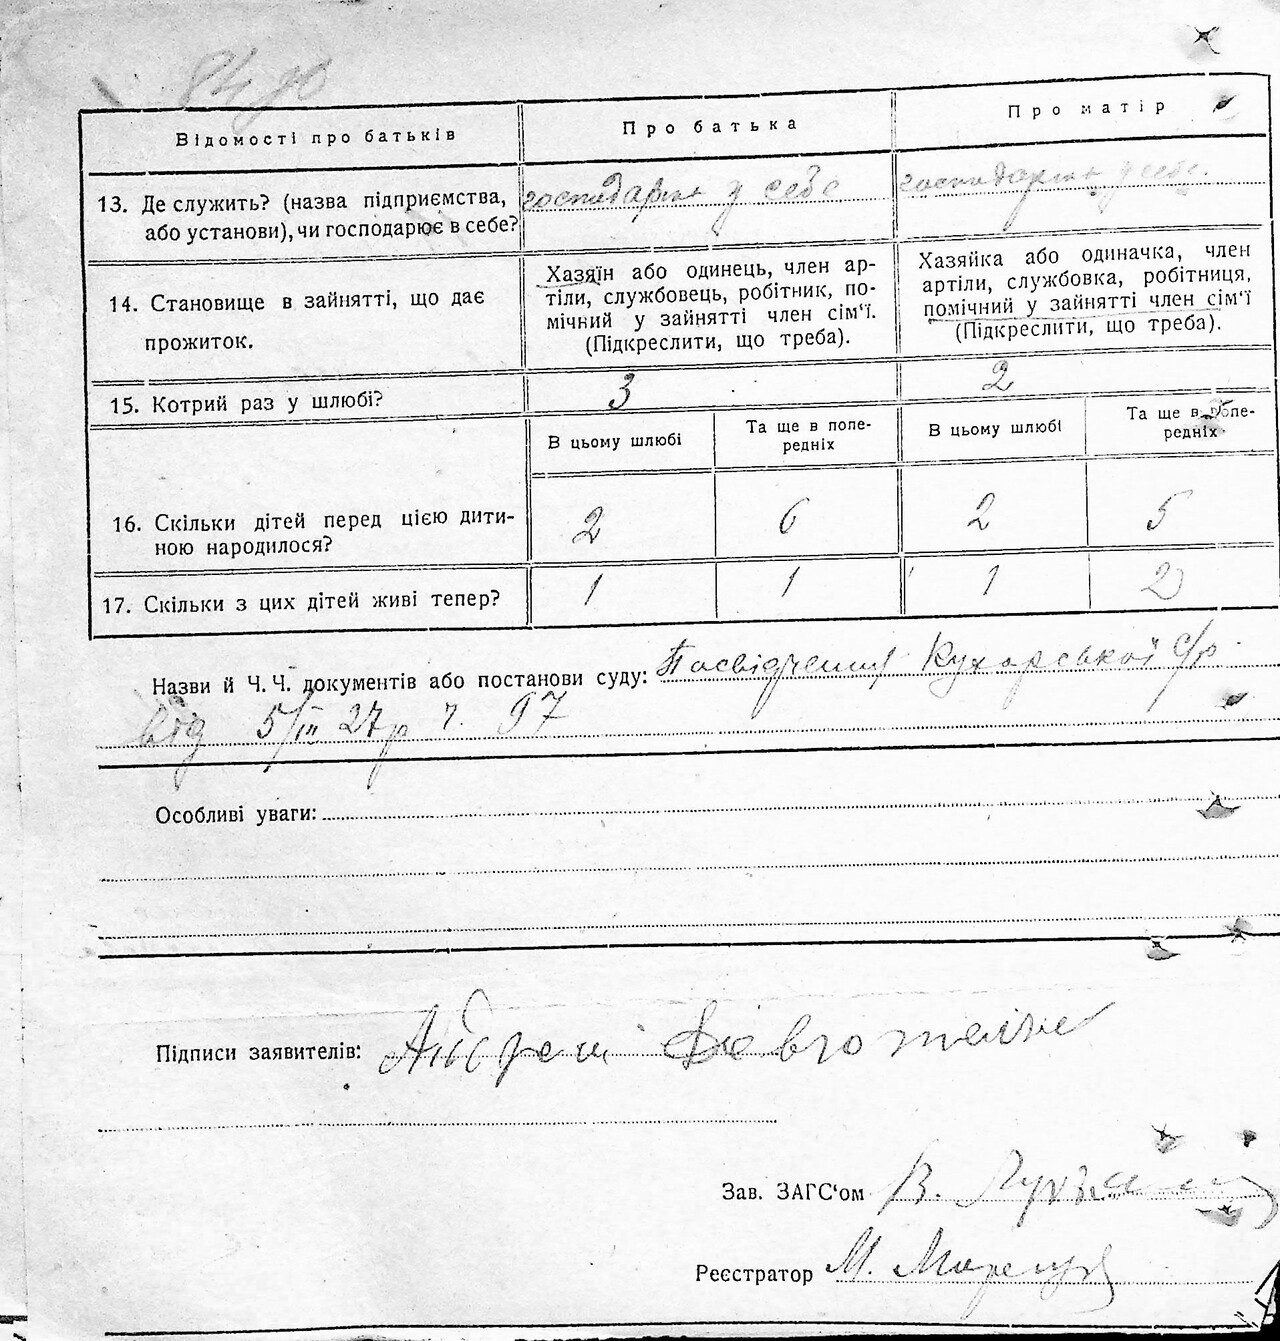 Відомості про батьків
Про батька
Про матір
13. Де служить? (назва підприємства, або установи), чи господарює в себе?
господарює у себе
господарює у себе.
14. Становище в зайнятті, що дає прожиток.
Хазяїн або одинець, член ар-
тіли, службовець, робітник, по-
мічний у зайнятті член сім'ї.
(Підкреслити, що треба).
Хазяйка або одиначка, член
артіли, службовка, робітниця,
помічний у зайнятті член сім'ї
(Підкреслити, що треба).
15. Котрий раз у шлюбі?
3
2
В цьому шлюбі
Та ще в попе-
редніх
В цьому шлюбі
Та ще в попе-
редніх
16. Скільки дітей перед цією дити-
ною народилося?
2
6
2
5
17. Скільки з цих дітей живі тепер?
1
1
1
2
Назви й Ч.Ч. документів або постанови суду: Посвідчення Кухарської с/р
від 5/III 27р ч. 97
Особливі уваги:
Підписи заявителів: Андрей
Зав. ЗАГС'ом В.
Реєстратор М.